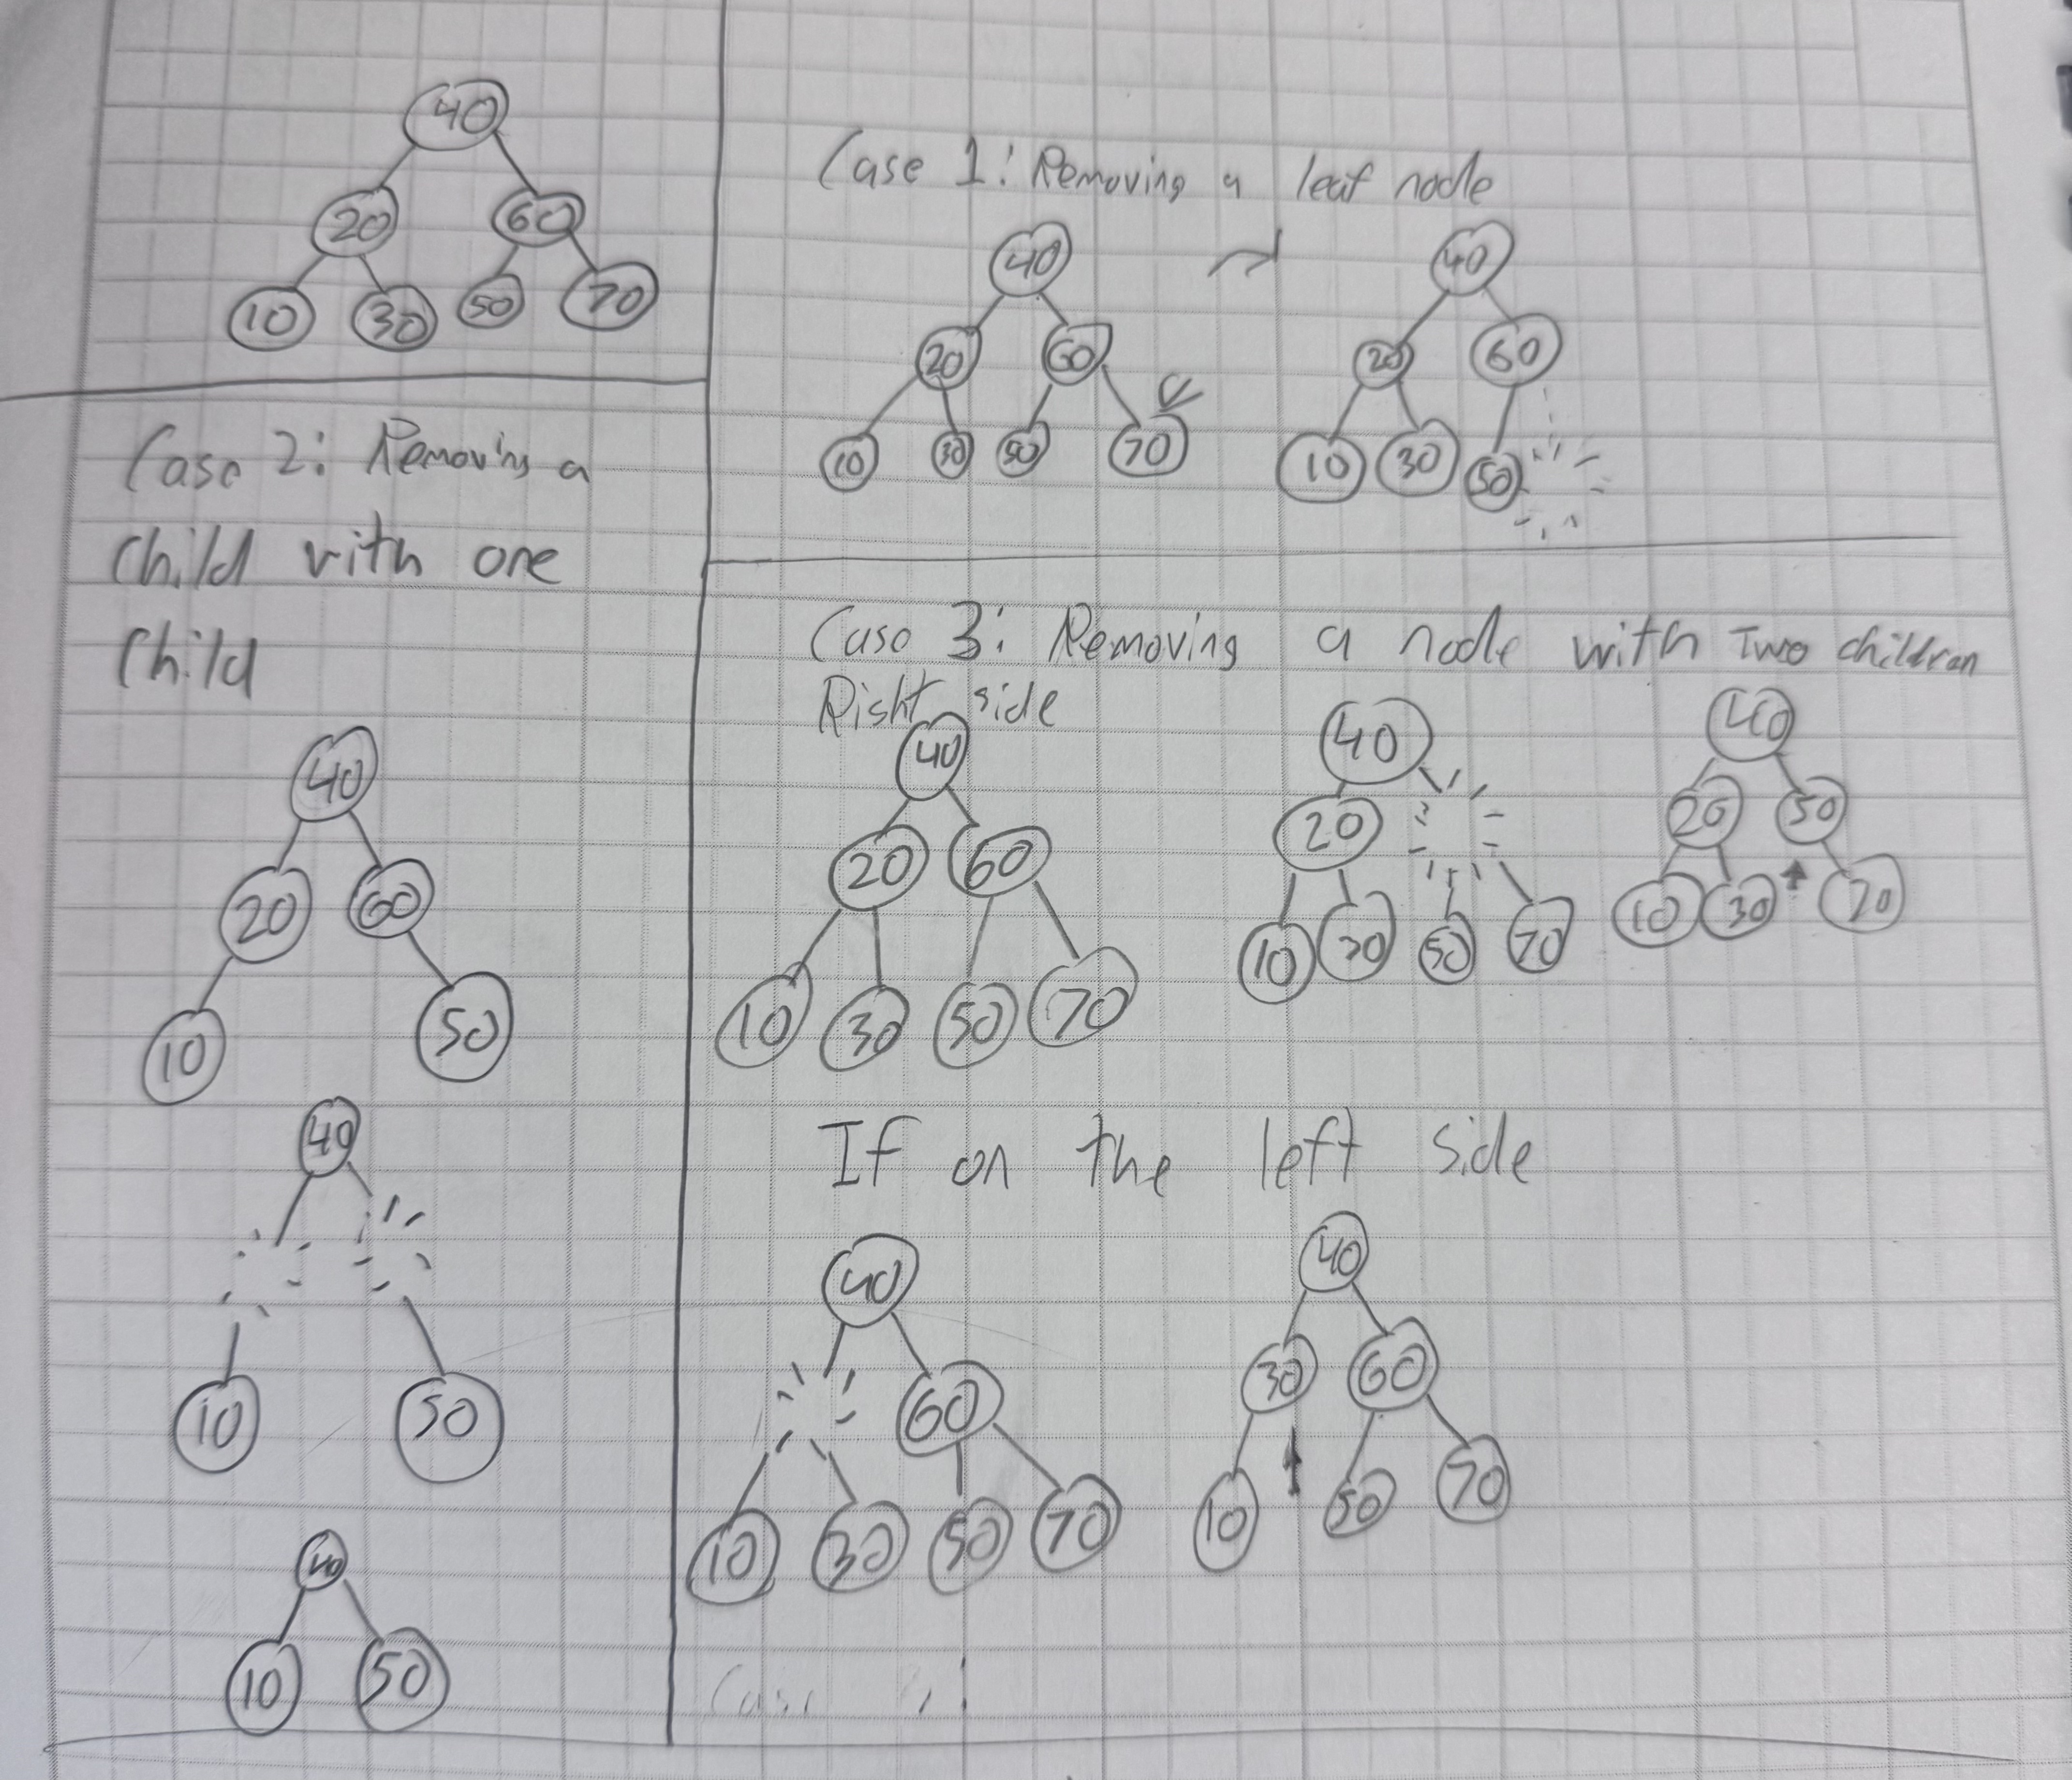 40
20 60
10 30 50 70
Case 1: Removing a leaf node
40
20 60
10 30 50 70
40
20 60
10 30 50
Case 2: Removing a
Child with one
Child
40
20 60
10 50
40
10 50
40
10 50
Case 3: Removing a node with Two children
Right side
40
20 60
10 30 50 70
40
20
10 30 50 70
40
20 50
10 30 70
If on the left side
40
60
10 30 50 70
40
30 60
10 50 70
Case